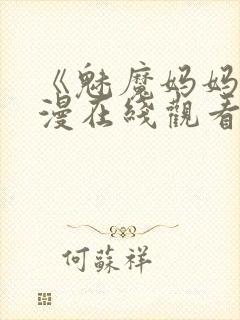 《魅魔妈妈
漫在綫觀看
何蘇祥